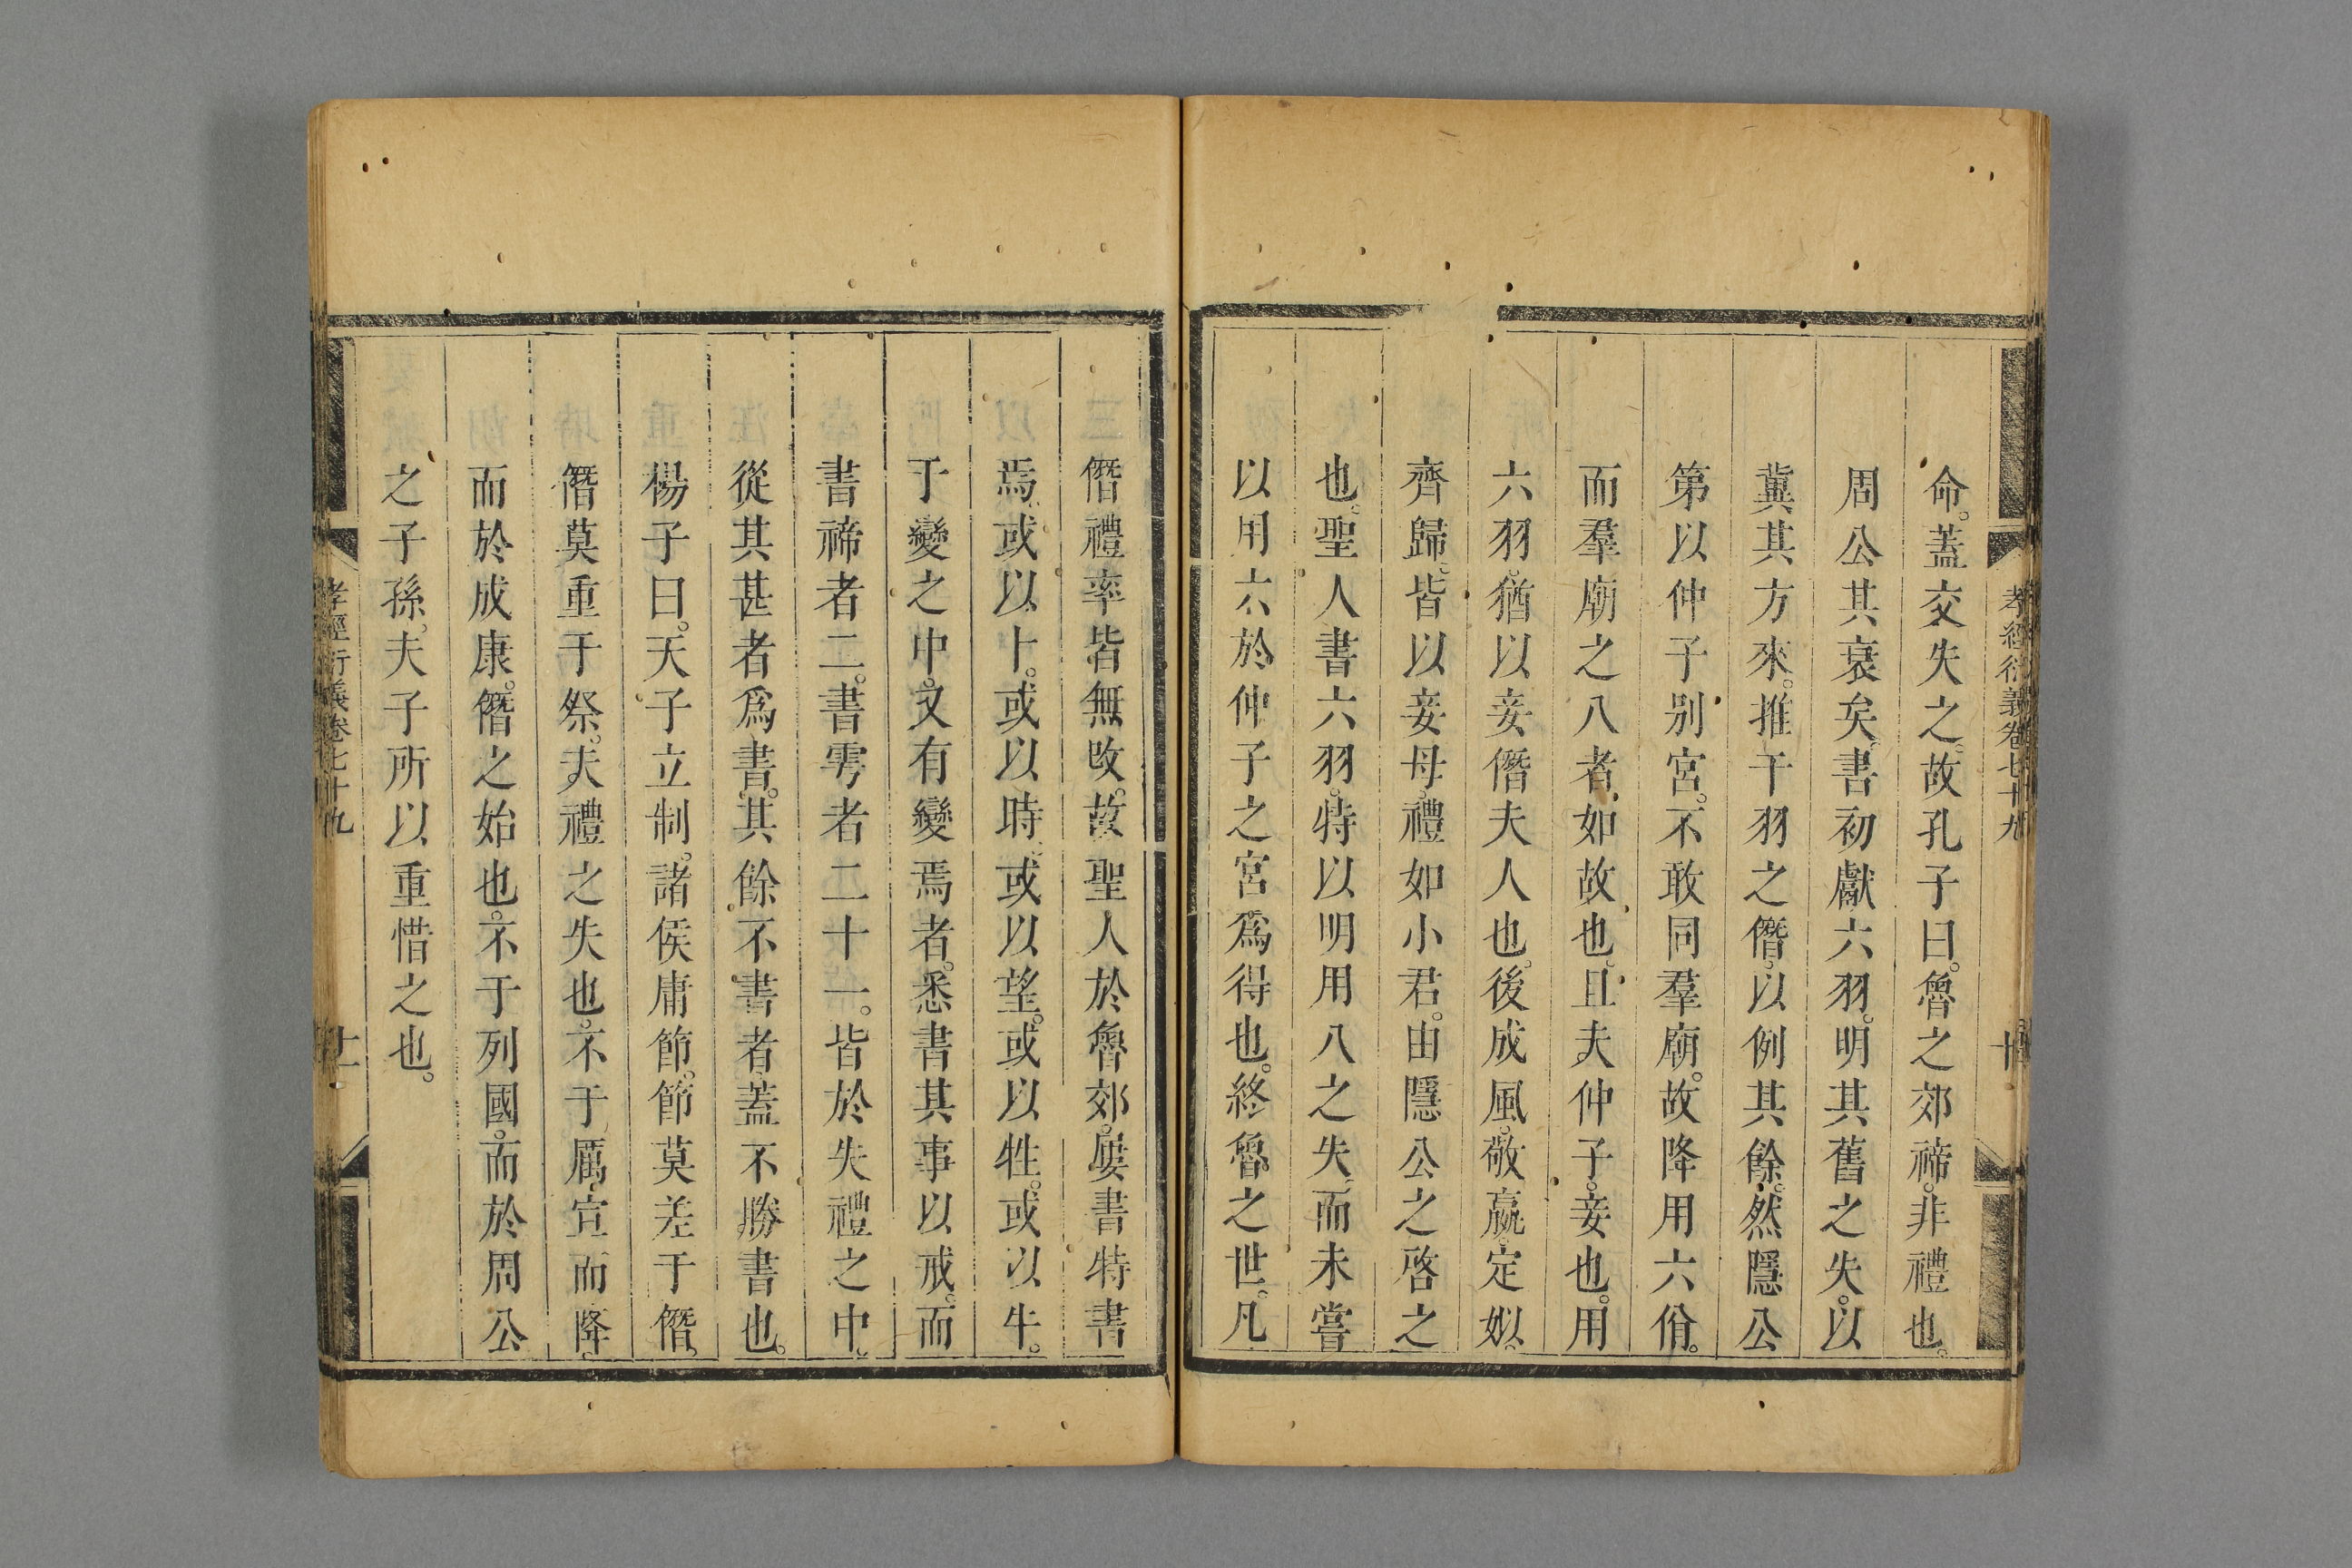 孝經衍義卷七十九
十
命。蓋交失之。故孔子曰。魯之郊禘。非禮也。
周公其衰矣。書初獻六羽。明其舊之失。以
冀其方來。推干羽之僭。以例其餘。然隱公
第以仲子別宮。不敢同羣廟。故降用六佾。
而羣廟之八者。如故也。且夫仲子。妾也。用
六羽。猶以妾僭夫人也。後成風。敬嬴。定姒。
齊歸。皆以妾母。禮如小君。由隱公之啓之
也。聖人書六羽。特以明用八之失。而未嘗
以用六於仲子之宮爲得也。終魯之世。凡
僭禮率皆無改。故聖人於魯郊。屢書特書
焉。或以卜。或以時。或以望。或以牲。或以牛。
于變之中。又有變焉者。悉書其事以戒。而
書禘者二。書雩者二十一。皆於失禮之中。
從其甚者爲書。其餘不書者。蓋不勝書也。
楊子曰。天子立制。諸侯庸節。節莫差于僭。
僭莫重于祭。夫禮之失也。不于厲宣而降。
而於成康。僭之始也。不于列國。而於周公
之子孫。夫子所以重惜之也。
孝經衍義卷七十九
十一